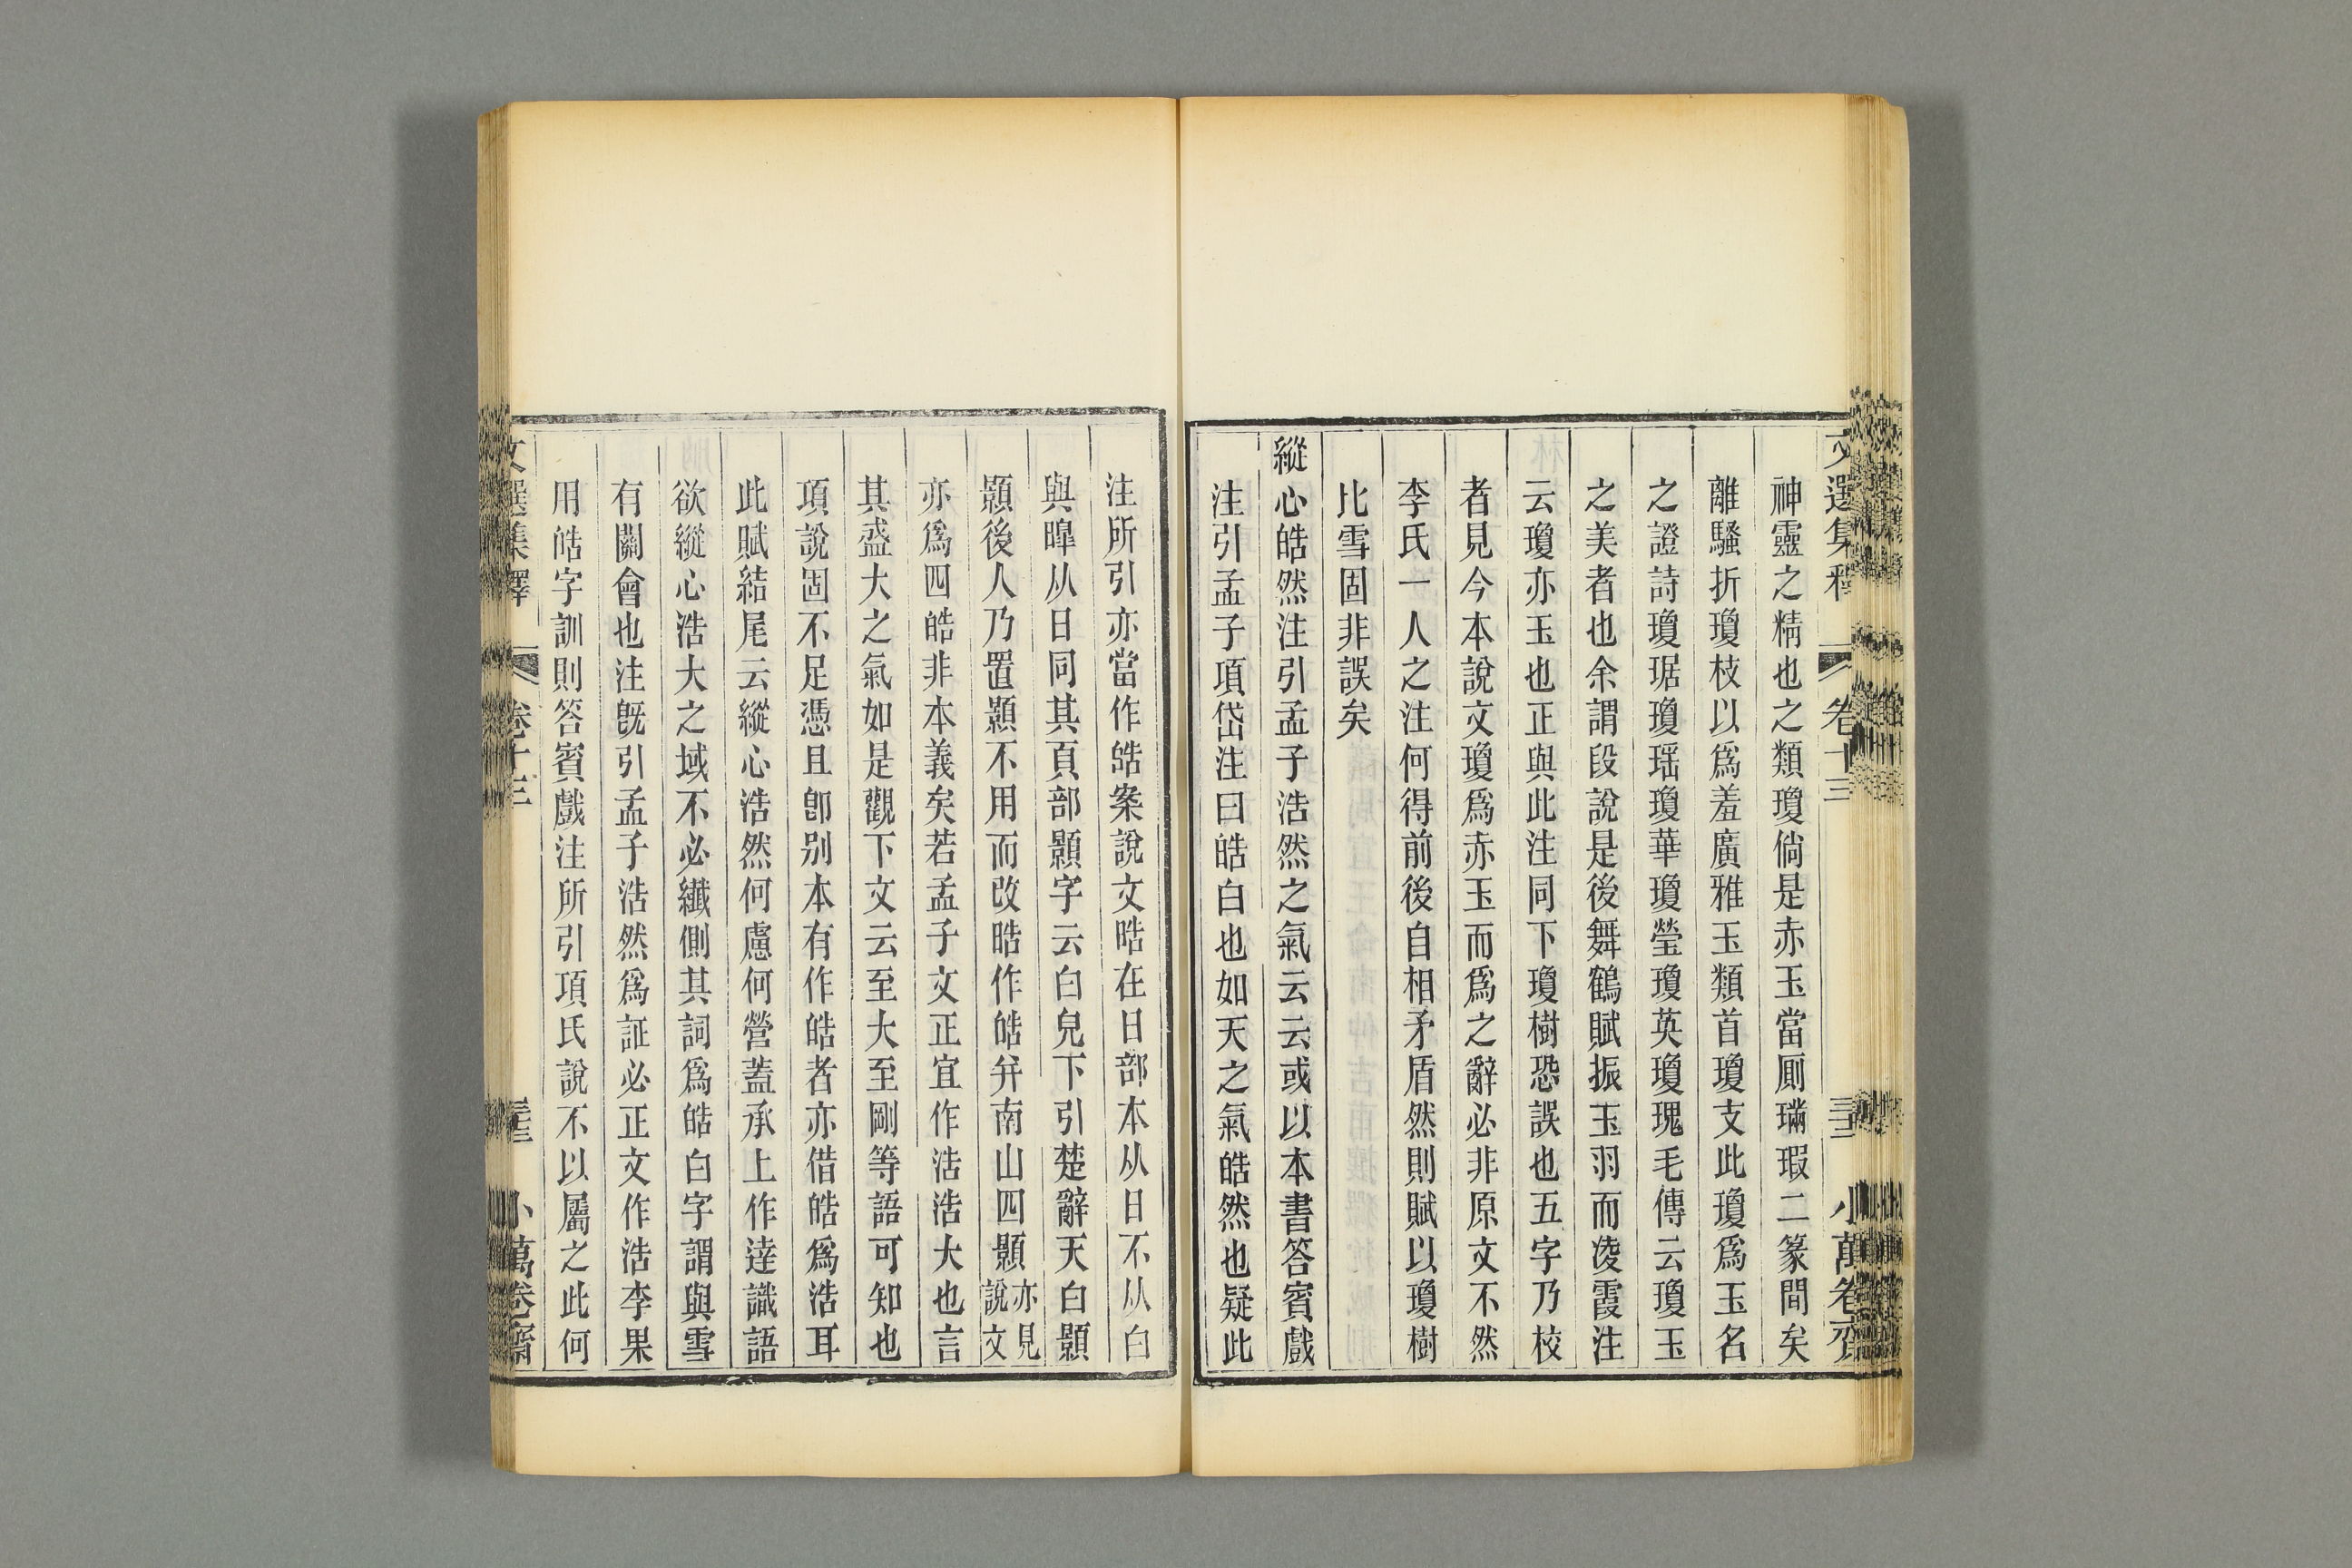 文選集釋 卷十三 三十二 小萬卷齋
神靈之精也之類瓊倘是赤玉當厠璊瑕二篆間矣
離騷折瓊枝以爲羞廣雅玉類首瓊支此瓊爲玉名
之證詩瓊琚瓊瑶瓊華瓊瑩瓊英瓊瑰毛傳云瓊玉
之美者也余謂段說是後舞鶴賦振玉羽而淩霞注
云瓊亦玉也正與此注同下瓊樹恐誤也五字乃校
者見今本說文瓊爲赤玉而爲之辭必非原文不然
李氏一人之注何得前後自相矛盾然則賦以瓊樹
比雪固非誤矣
縱心皓然注引孟子浩然之氣云云或以本書答賓戲
注引孟子項岱注曰皓白也如天之氣皓然也疑此
注所引亦當作皓案說文晧在日部本从日不从白
與暤从日同其頁部顥字云白皃下引楚辭天白顥
顥後人乃置顥不用而改晧作皓并南山四顥亦見說文
亦爲四皓非本義矣若孟子文正宜作浩浩大也言
其盛大之氣如是觀下文云至大至剛等語可知也
項說固不足憑且卽别本有作皓者亦借皓爲浩耳
此賦結尾云縱心浩然何慮何營蓋承上作達識語
欲縱心浩大之域不必纖側其詞爲皓白字謂與雪
有關會也注旣引孟子浩然爲証必正文作浩李果
用皓字訓則答賓戲注所引項氏說不以屬之此何
文選集釋 卷十三 小萬卷齋